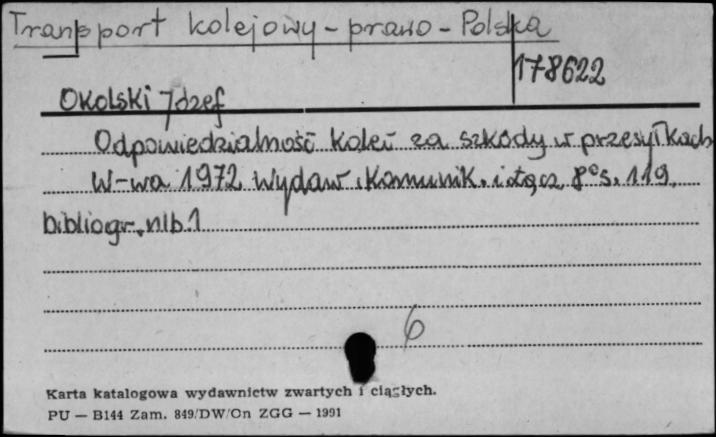 Transport kolejowy - prawo - Polska
178622
Okolski Józef
Odpowiedzialność kolei za szkody w przesyłkach
W-wa 1972 Wydaw. Komunik. i Łącz. 8° s. 119,
bibliogr. nlb. 1
6
Karta katalogowa wydawnictw zwartych i ciągłych.
PU — B144 Zam. 849/DW/On ZGG — 1991